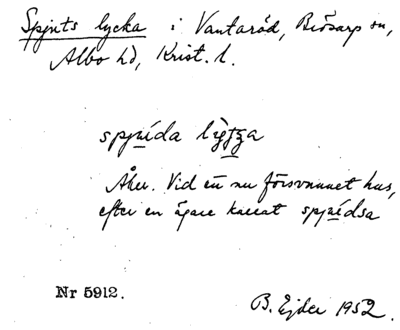 Spjuts lycka i Vantaröd, Brösarp sn,
Albo hd, Krist. l.
spjuída lyèţţa
Åker. Vid ett nu försvunnet hus,
efter en ägare kallat spjuídsa
Nr 5912.
B. Ejder 1952.